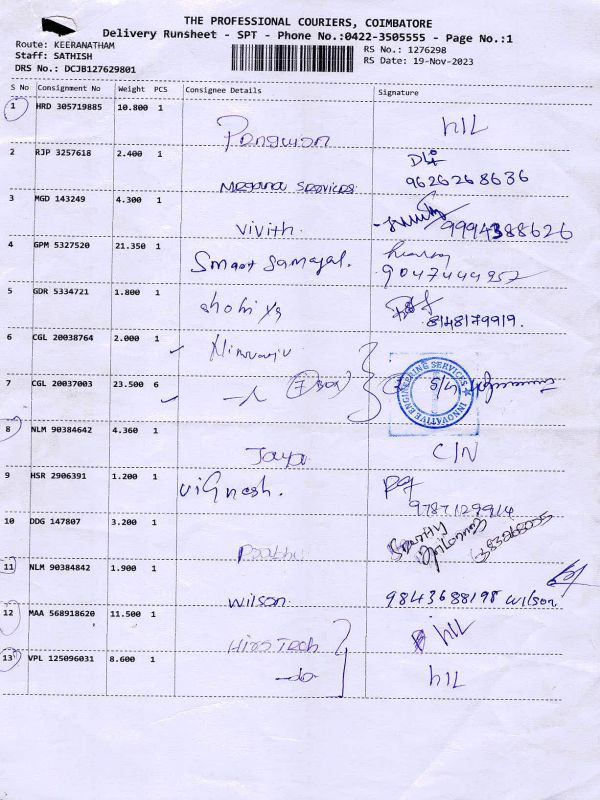 THE PROFESSIONAL COURIERS, COIMBATORE
Delivery Runsheet - SPT - Phone No.:0422-3505555 - Page No.:1
Route: KEERANATHAM
RS No.: 1276298
Staff: SATHISH
RS Date: 19-Nov-2023
DRS No.: DCJB127629801
S No Consignment No Weight PCS Consignee Details Signature
1 HRD 305719885 10.800 1
Penguion h1L
2 RJP 3257618 2.400 1
Megana Services 9626268636
3 MGD 143249 4.300 1
vivith. 9994388626
4 GPM 5327520 21.350 1
Smart Samayal. 9047444952
5 GDR 5334721 1.800 1
shobiya 8148179919.
6 CGL 20038764 2.000 1
7 CGL 20037003 23.500 6
7 BOX
INNOVATIVE ENGINEERING SERVICES
8 NLM 90384642 4.360 1
Jaya C/N
9 HSR 2906391 1.200 1
viGnesh. 9787129914
10 DDG 147807 3.200 1
Prabhu
11 NLM 90384842 1.900 1
wilson 9843688198 wilson
12 MAA 568918620 11.500 1
HiRS Tech h1L
13 VPL 125096031 8.600 1
-do- h1L